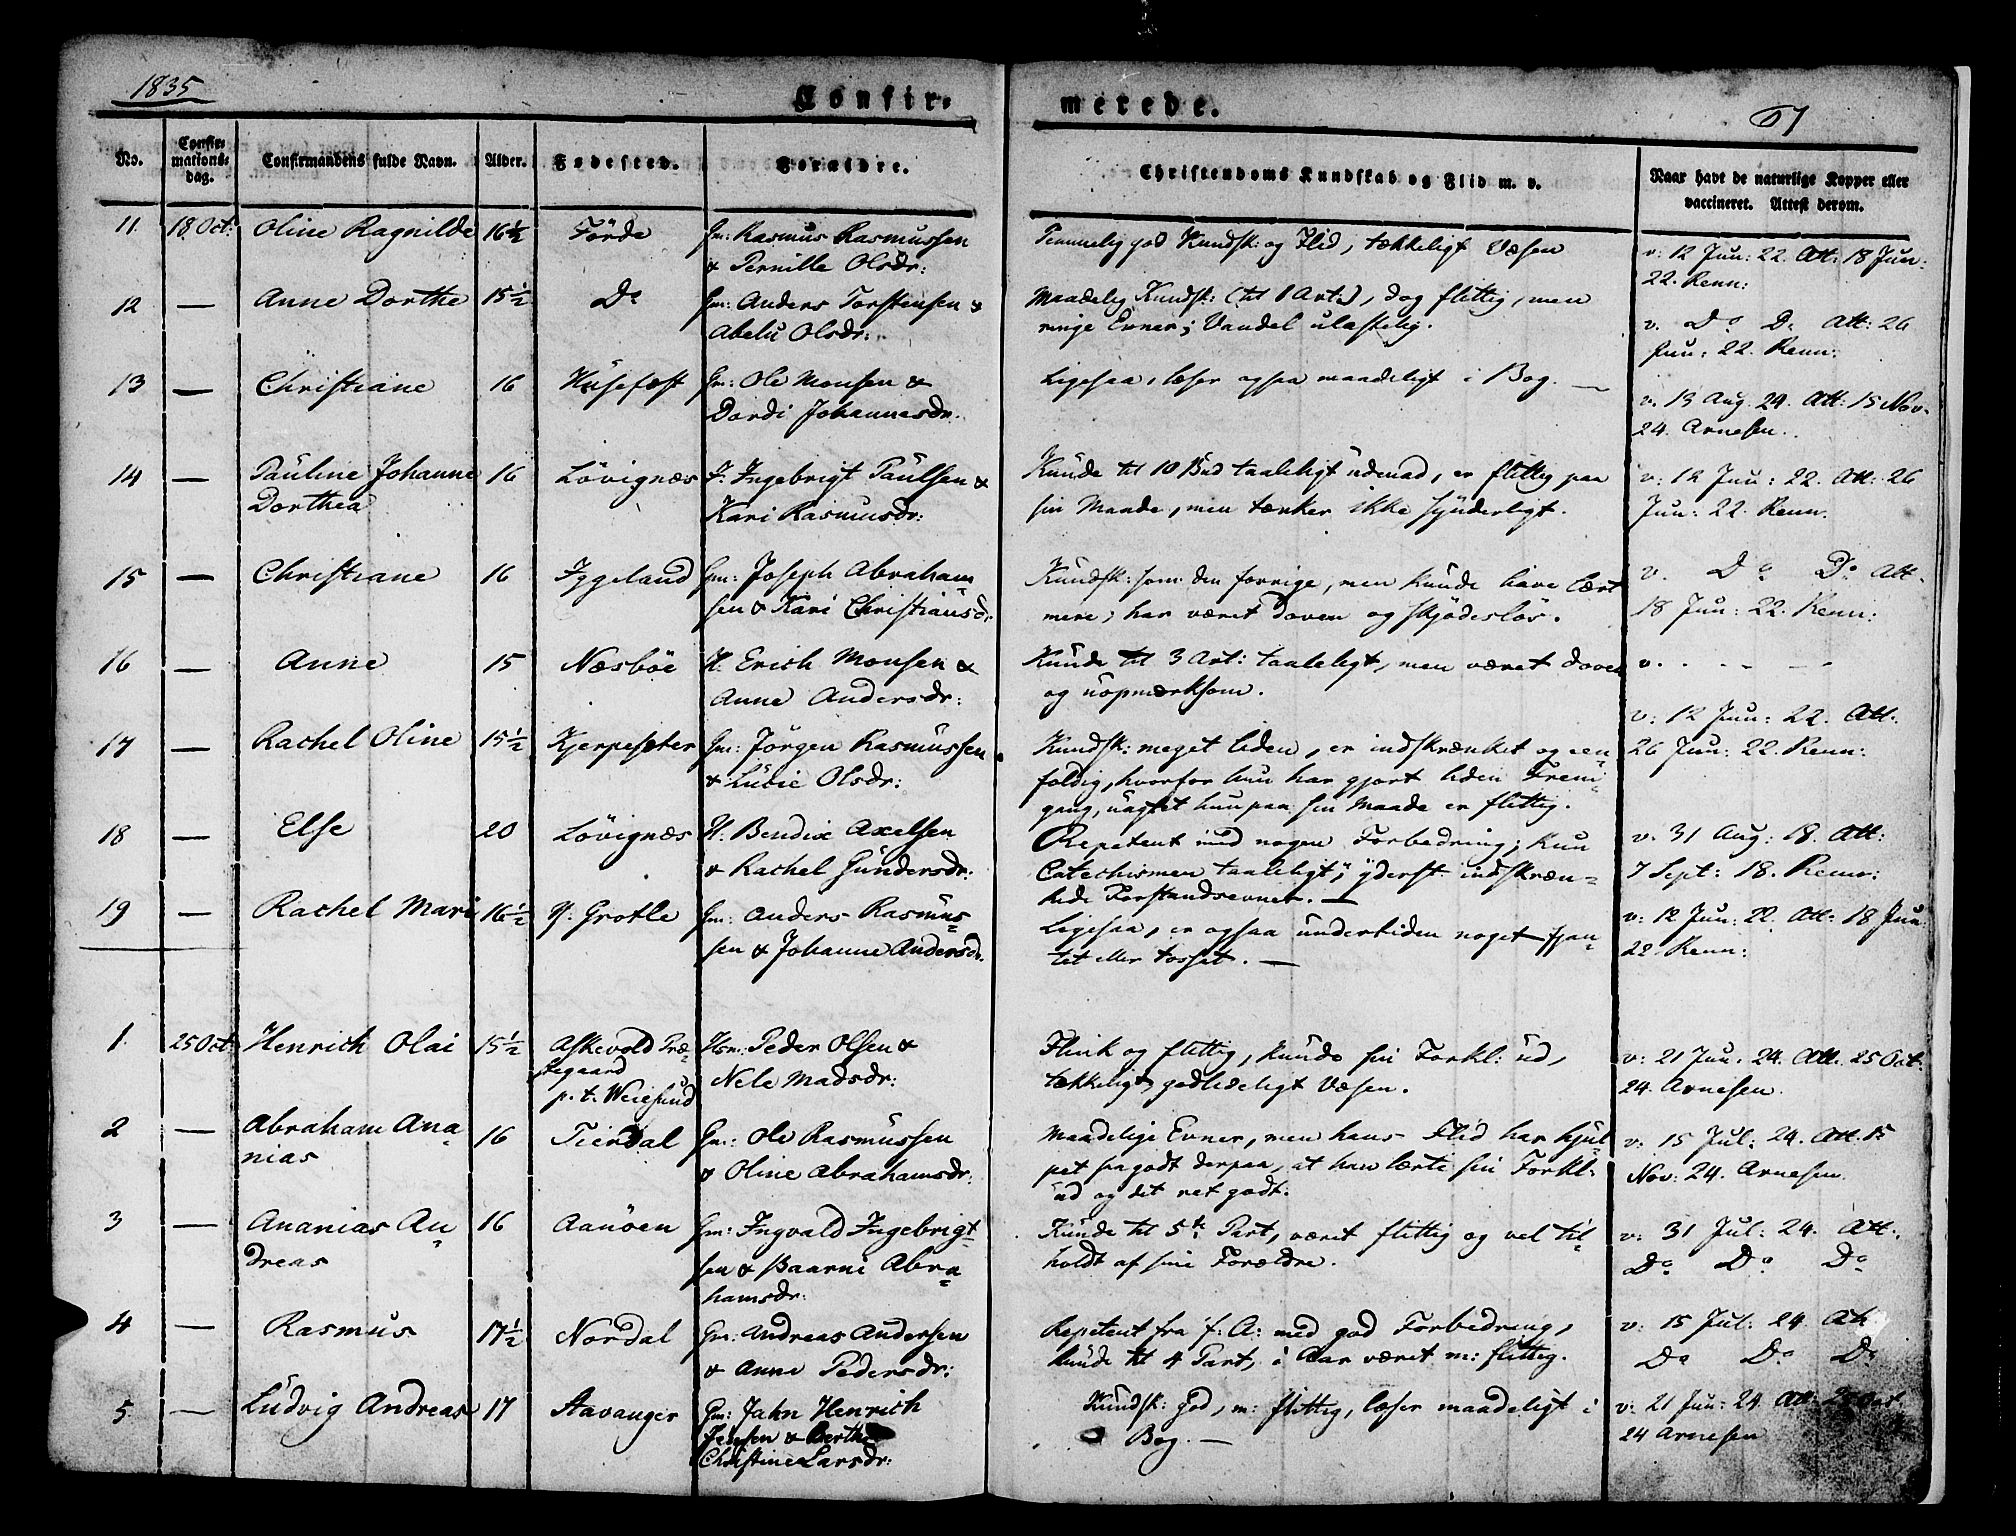 1835
Confir- merede.
67
No.
Confir-
mations-
dag.
Confirmandens fulde Navn.
Alder.
Fødested.
Forældre.
Christendoms Kundskab og Flid m. v.
Naar havt de naturlige Kopper eller
vaccineret. Attest derom.
11. 18 Oct: Oline Ragnilde 16½ Förde Gm: Rasmus Rasmussen
& Pernille Olsdr:
Temmelig god Kundsk: og Flid, tækkeligt Væsen
v: 12 Jun: 22. Att: 18 Jun:
22. Renn:
12 — Anne Dorthe 15½ Do Gm: Anders Torstensen &
Abelu Olsdr:
Maadelig Kundsk: (til 1 Art:), dog flittig, men
ringe Evner; Vandel ulastelig.
v. Do Do Att: 26
Jun: 22. Renn:
13 — Christiane 16 Husefæst Gm: Ole Monsen &
Dordi Johannesdr:
Ligesaa, læser ogsaa maadeligt i Bog. —
v. 13 Aug. 24. Att: 15 Nov.
24. Arnesen.
14 — Pauline Johanne 16 Lövignæs F. Ingebrigt Paulsen &
Dorthea
Kari Rasmusdr:
Kunde til 10 Bud taaleligt udenad, er flittig paa
sin Maade, men tænker ikke synderligt.
v: 12 Jun: 22. Att: 26
Jun: 22. Renn.
15 — Christiane 16 Igeland Gm: Joseph Abraham
sen & Kari Christiansdr:
Kundsk: som den forrige, men kunde have lært
mere; har været doven og skjödeslös.
v. Do Do Att.
18 Jun: 22. Renn:
16 — Anne 15 Næsböe H: Erich Monsen &
Anne Andersdr:
Kunde til 3 Art: taaleligt, men været doven
og uopmærksom.
v. . - - - -
17 — Rachel Oline 15½ Kjerpeseter Gm: Jörgen Rasmussen
& Lucie Olsdr:
Kundsk: meget liden, er indskrænket og een-
foldig, hvorfor hun har gjort liden Frem-
gang, uagtet hun paa sin Maade er flittig.
v: 12 Jun: 22. Att:
26 Jun: 22. Renn:
18 — Else 20 Lövignæs H: Bendix Axelsen
& Rachel Gundersdr:
Repetent med nogen Forbedring; kun
Catechismen taaleligt; yderst indskræn-
kede Forstandsevner. —
v. 31 Aug: 18. Att:
7 Sept: 18. Renn:
19 — Rachel Mari 16½ Y: Grotle Gm: Anders Rasmus-
sen & Johanne Andersdr.
Ligesaa, er ogsaa undertiden noget fjan-
tet eller tosset. —
v: 12 Jun: 22. Att: 18 Jun:
22 Renn:
1. 25 Oct: Henrich Olai 15½ Askevold Præ-
stegaard
p. t. Weiesund
Hsm: Peder Olsen &
Nele Madsdr:
Flink og flittig, kunde sin Forkl: ud,
tækkeligt, godlideligt Væsen.
v: 21 Jun: 24. Att. 25 Oct:
24. Arnesen.
2 — Abraham Ana- 16 Tierdal Gm: Ole Rasmussen
nias
& Oline Abrahamsdr:
Maadelige Evner, men hans Flid har hjul-
pet saa godt derpaa, at han lærte sin Forkl:
ud og det ret godt.
v: 15 Jul: 24. Att. 15
Nov: 24. Arnesen.
3 — Ananias An- 16 Aanöen Gm: Ingvald Ingebrigt-
dreas
sen & Baarni Abra-
hamsdr:
Kunde til 5te Part, været flittig og vel til-
holdt af sine Forældre.
v: 31 Jul: 24. Att:
Do Do Do
4 — Rasmus 17½ Nordal Gm: Andreas Andersen
& Anne Pedersdr:
Repetent fra f: A: med god Forbedring,
kunde til 4 Part, i Aar været m: flittig.
v: 15 Jul: 24. Att
Do Do Do
5. — Ludvig Andreas 17 Stavanger Gm: Jahn Henrich
Jensen & Berthe
Christine Larsdr:
Kundsk: god, m: flittig, læser maadeligt i
Bog. —
v: 21 Jun: 24. Att: 25 Oct
24 Arnesen